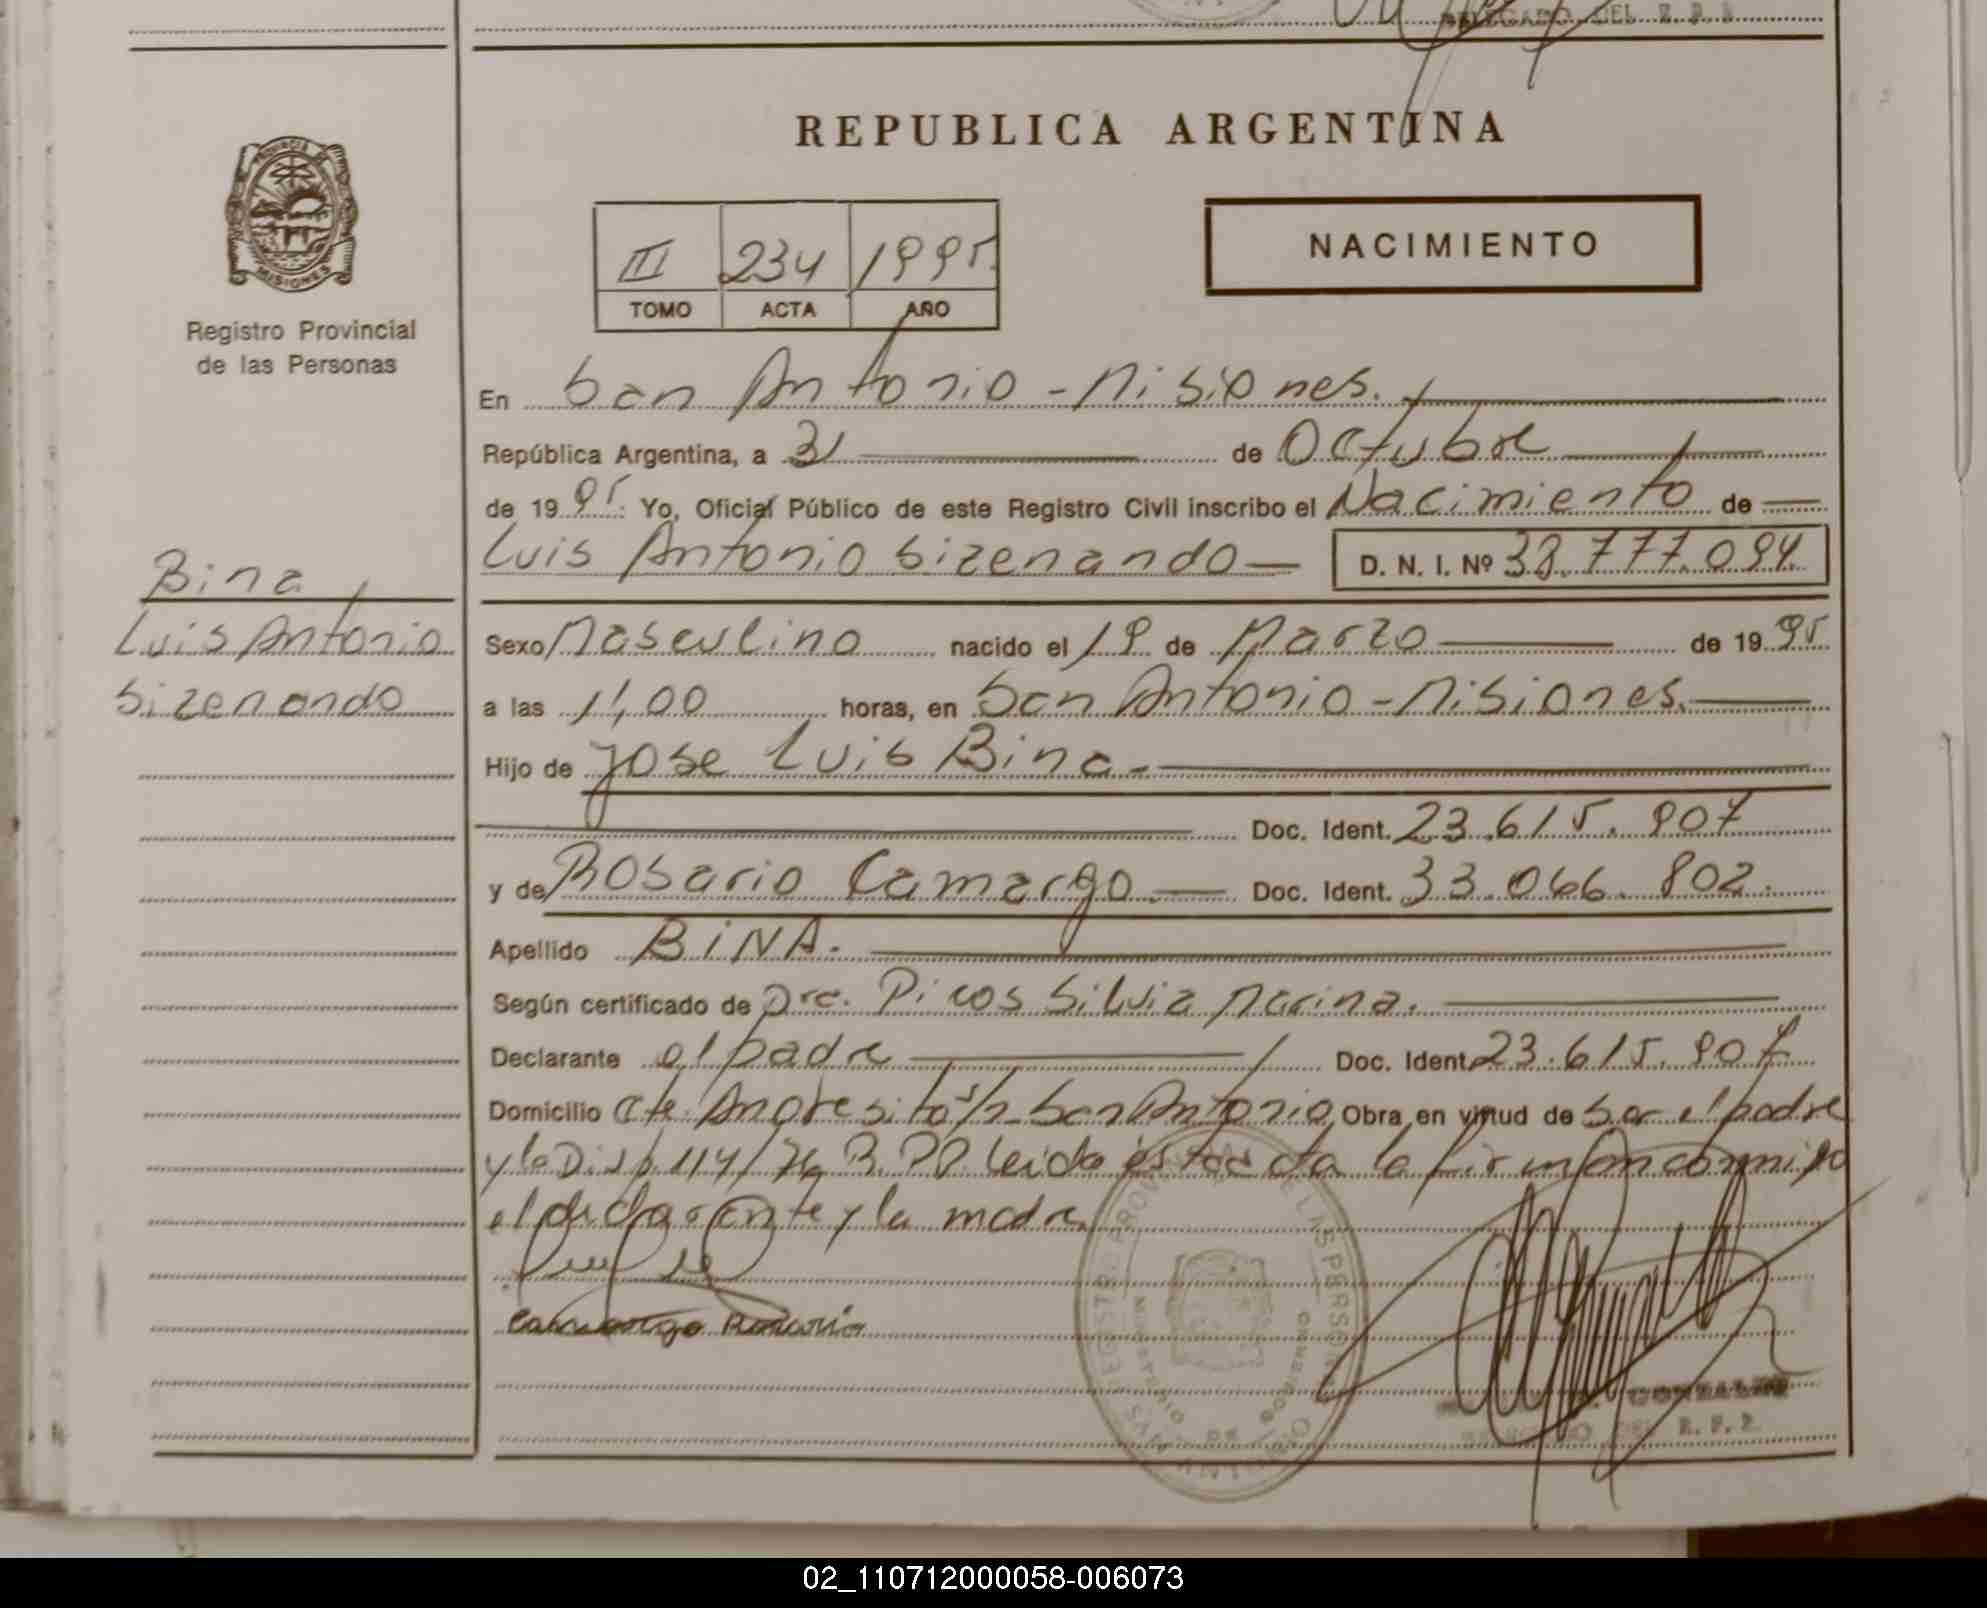 DELEGADO DEL R. P. P.
REPUBLICA ARGENTINA
PROVINCIA DE
MISIONES
Registro Provincial
de las Personas
III 234 1995
TOMO ACTA AÑO
NACIMIENTO
En San Antonio - Misiones.
República Argentina, a 31 de Octubre
de 1995. Yo, Oficial Público de este Registro Civil inscribo el Nacimiento de
Luis Antonio Sizenando D. N. I. Nº 38.777.094.
Bina,
Luis Antonio
Sizenando
Sexo Masculino nacido el 19 de Marzo de 1995
a las 11,00 horas, en San Antonio - Misiones.
Hijo de Jose Luis Bina.
Doc. Ident. 23.615.907
y de Rosario Camargo. Doc. Ident. 33.066.802.
Apellido BINA.
Según certificado de Dra. Picos Silvia Marina.
Declarante el padre Doc. Ident. 23.615.907
Domicilio Cte. Andresito s/n San Antonio Obra en virtud de ser el padre
y la Disp. 114/76 R.P.P. leida esta acta la firman conmigo
el declarante y la madre
Camargo Rosario
REGISTRO PROVINCIAL DE LAS PERSONAS
MINISTERIO DE GOBIERNO
SAN ANTONIO
GONZALEZ
DELEGADO DEL R. P. P.
02_110712000058-006073